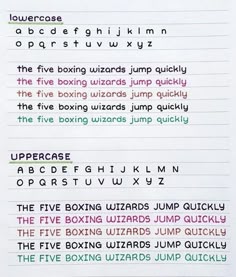 lowercase
a b c d e f g h i j k l m n
o p q r s t u v w x y z
the five boxing wizards jump quickly
the five boxing wizards jump quickly
the five boxing wizards jump quickly
the five boxing wizards jump quickly
the five boxing wizards jump quickly
UPPERCASE
A B C D E F G H I J K L M N
O P Q R S T U V W X Y Z
THE FIVE BOXING WIZARDS JUMP QUICKLY
THE FIVE BOXING WIZARDS JUMP QUICKLY
THE FIVE BOXING WIZARDS JUMP QUICKLY
THE FIVE BOXING WIZARDS JUMP QUICKLY
THE FIVE BOXING WIZARDS JUMP QUICKLY